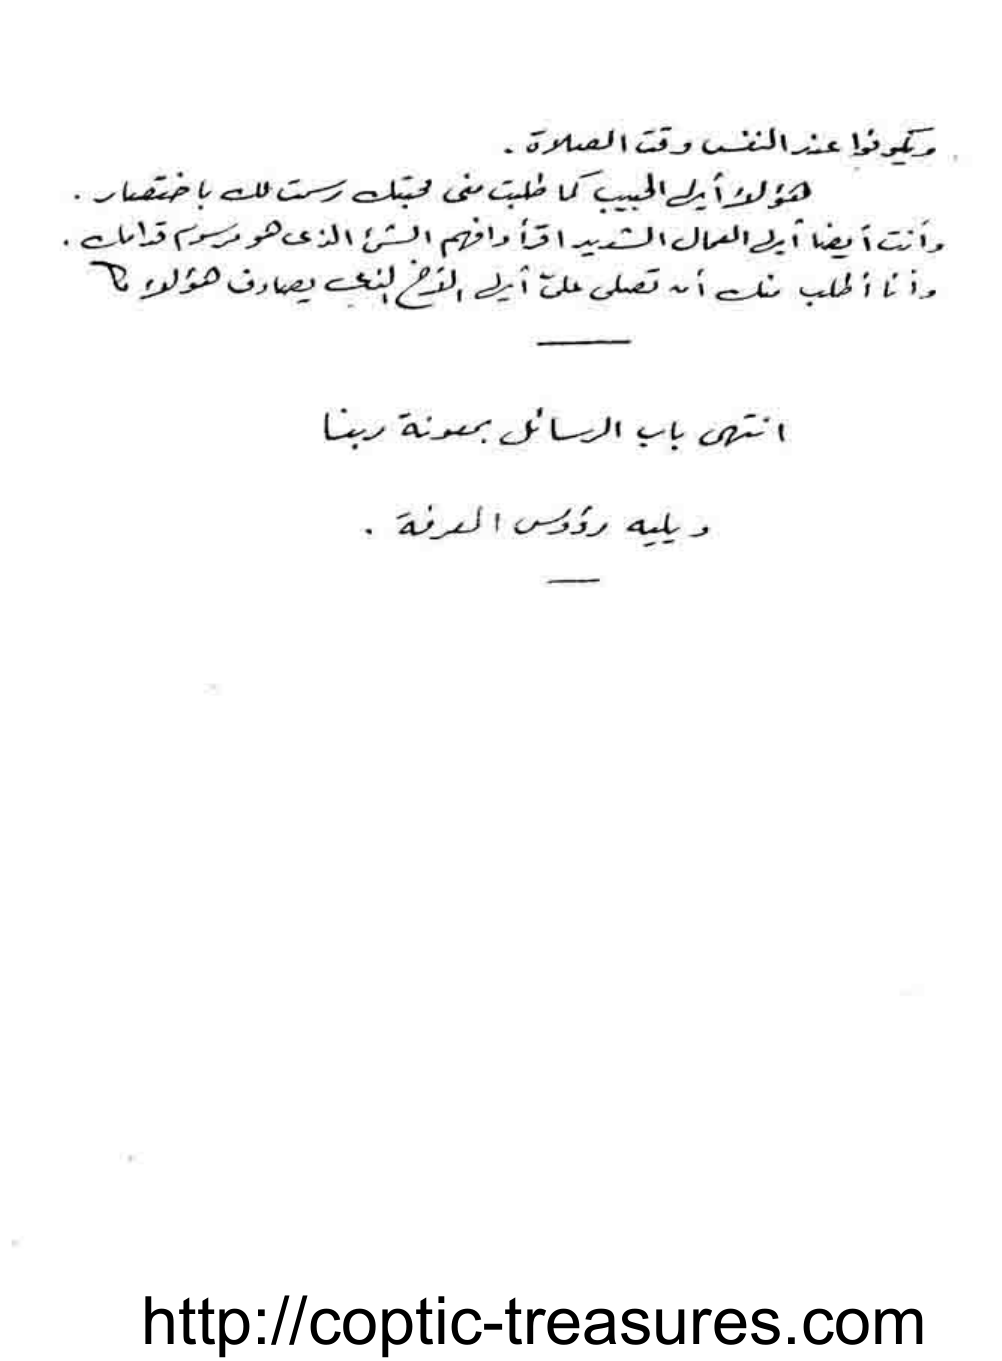 ويكونوا عند النفس وقت الصلاة .
هؤلاء أيها الحبيب كما طلبت منى محبتك رسمت لك باختصار .
وأنت أيضا أيها العمال الشديد اقرأ وافهم الشئ الذى هو مرسوم قدامك .
وأنا أطلب منك أن تصلى علىّ أيها الأخ الذى يصادف هؤلاء
انتهى باب الرسائل بمعونة ربنا
ويليه رؤوس المعرفة .
http://coptic-treasures.com